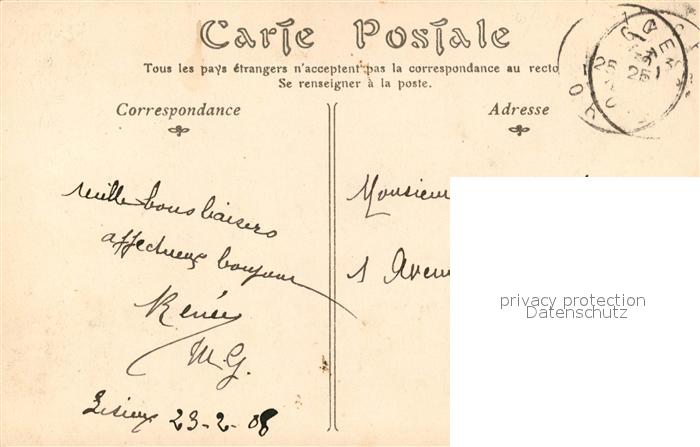 Carte Postale
Tous les pays étrangers n'acceptent pas la correspondance au recto
Se renseigner à la poste.
Correspondance
Adresse
mille bons baisers
affectueux bonjour
Renée
M. G.
Lisieux 23-2-08
Monsieur
1 Aven
privacy protection
Datenschutz